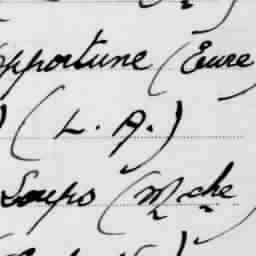 opportune (Eure)
) (L. A.)
Loups (Mche